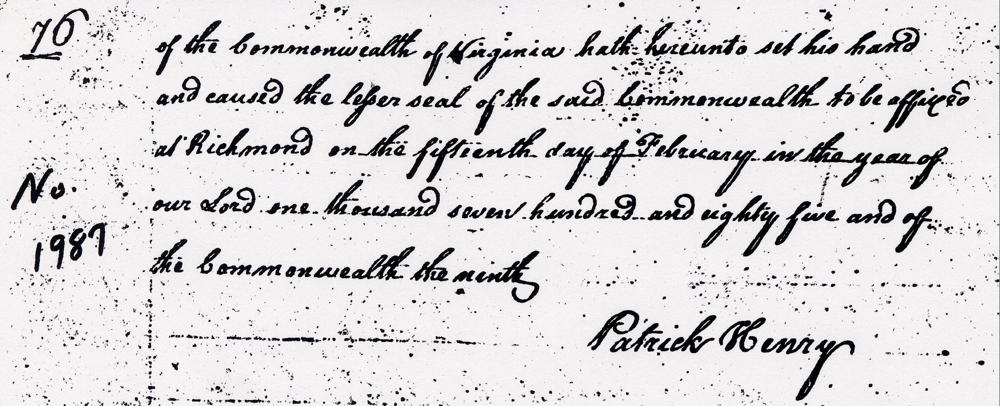 76
of the Commonwealth of Virginia hath hereunto set his hand
and caused the lesser seal of the said Commonwealth to be affixed
at Richmond on the fifteenth day of February in the year of
No.
our Lord one thousand seven hundred and eighty five and of
1987
the Commonwealth the ninth
Patrick Henry